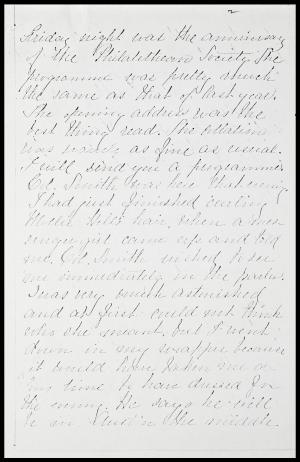 2
Friday night was the anniversary
of the Philalethean Society. The
programme was pretty much
the same as that of last year.
The opening address was the
best thing read. The
was scarcely as fine as usual.
I will send you a programme.
Col. Smith was here that evening
I had just finished curling
hair, when a mes-
senger girl came up and told
me Col. Smith wished to see
me immediately in the parlor.
I was very much astonished
and at first could not think
who she meant, but I went
down in my wrapper because
it would have taken me so
long time to have dressed for
the evening. He says he will
be in the middle